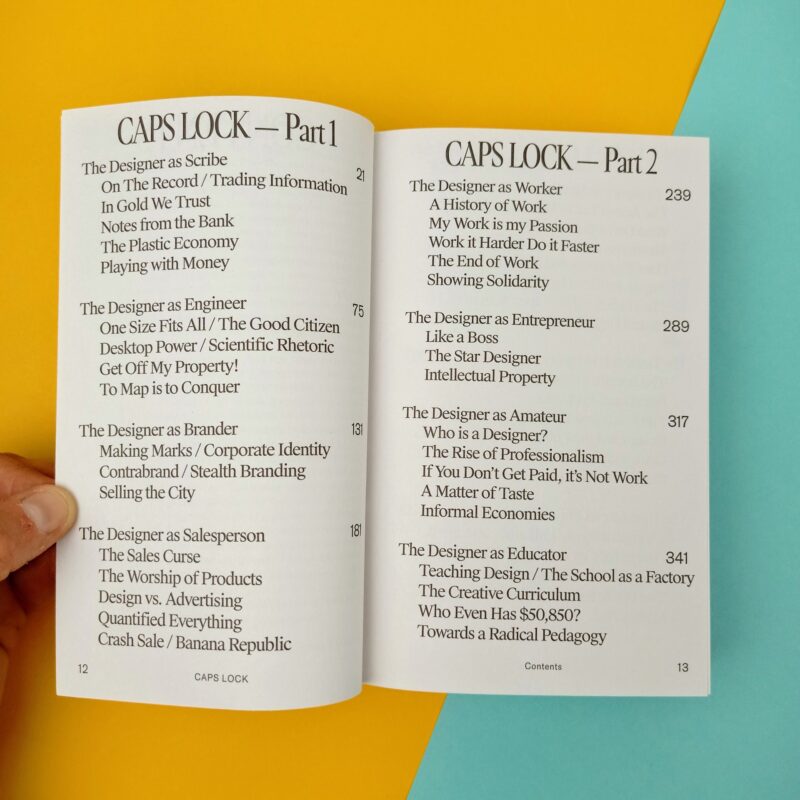 CAPS LOCK — Part 1
The Designer as Scribe 21
On The Record / Trading Information
In Gold We Trust
Notes from the Bank
The Plastic Economy
Playing with Money
The Designer as Engineer 75
One Size Fits All / The Good Citizen
Desktop Power / Scientific Rhetoric
Get Off My Property!
To Map is to Conquer
The Designer as Brander 131
Making Marks / Corporate Identity
Contrabrand / Stealth Branding
Selling the City
The Designer as Salesperson 181
The Sales Curse
The Worship of Products
Design vs. Advertising
Quantified Everything
Crash Sale / Banana Republic
12 CAPS LOCK
CAPS LOCK — Part 2
The Designer as Worker 239
A History of Work
My Work is my Passion
Work it Harder Do it Faster
The End of Work
Showing Solidarity
The Designer as Entrepreneur 289
Like a Boss
The Star Designer
Intellectual Property
The Designer as Amateur 317
Who is a Designer?
The Rise of Professionalism
If You Don't Get Paid, it's Not Work
A Matter of Taste
Informal Economies
The Designer as Educator 341
Teaching Design / The School as a Factory
The Creative Curriculum
Who Even Has $50,850?
Towards a Radical Pedagogy
Contents 13